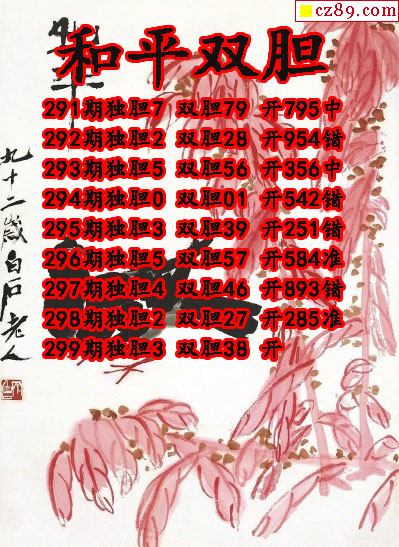 cz89.com
和平双胆
291期独胆7 双胆79 开795中
292期独胆2 双胆28 开954错
293期独胆5 双胆56 开356中
294期独胆0 双胆01 开542错
295期独胆3 双胆39 开251错
296期独胆5 双胆57 开584准
297期独胆4 双胆46 开893错
298期独胆2 双胆27 开285准
299期独胆3 双胆38 开
九十二岁白石老人